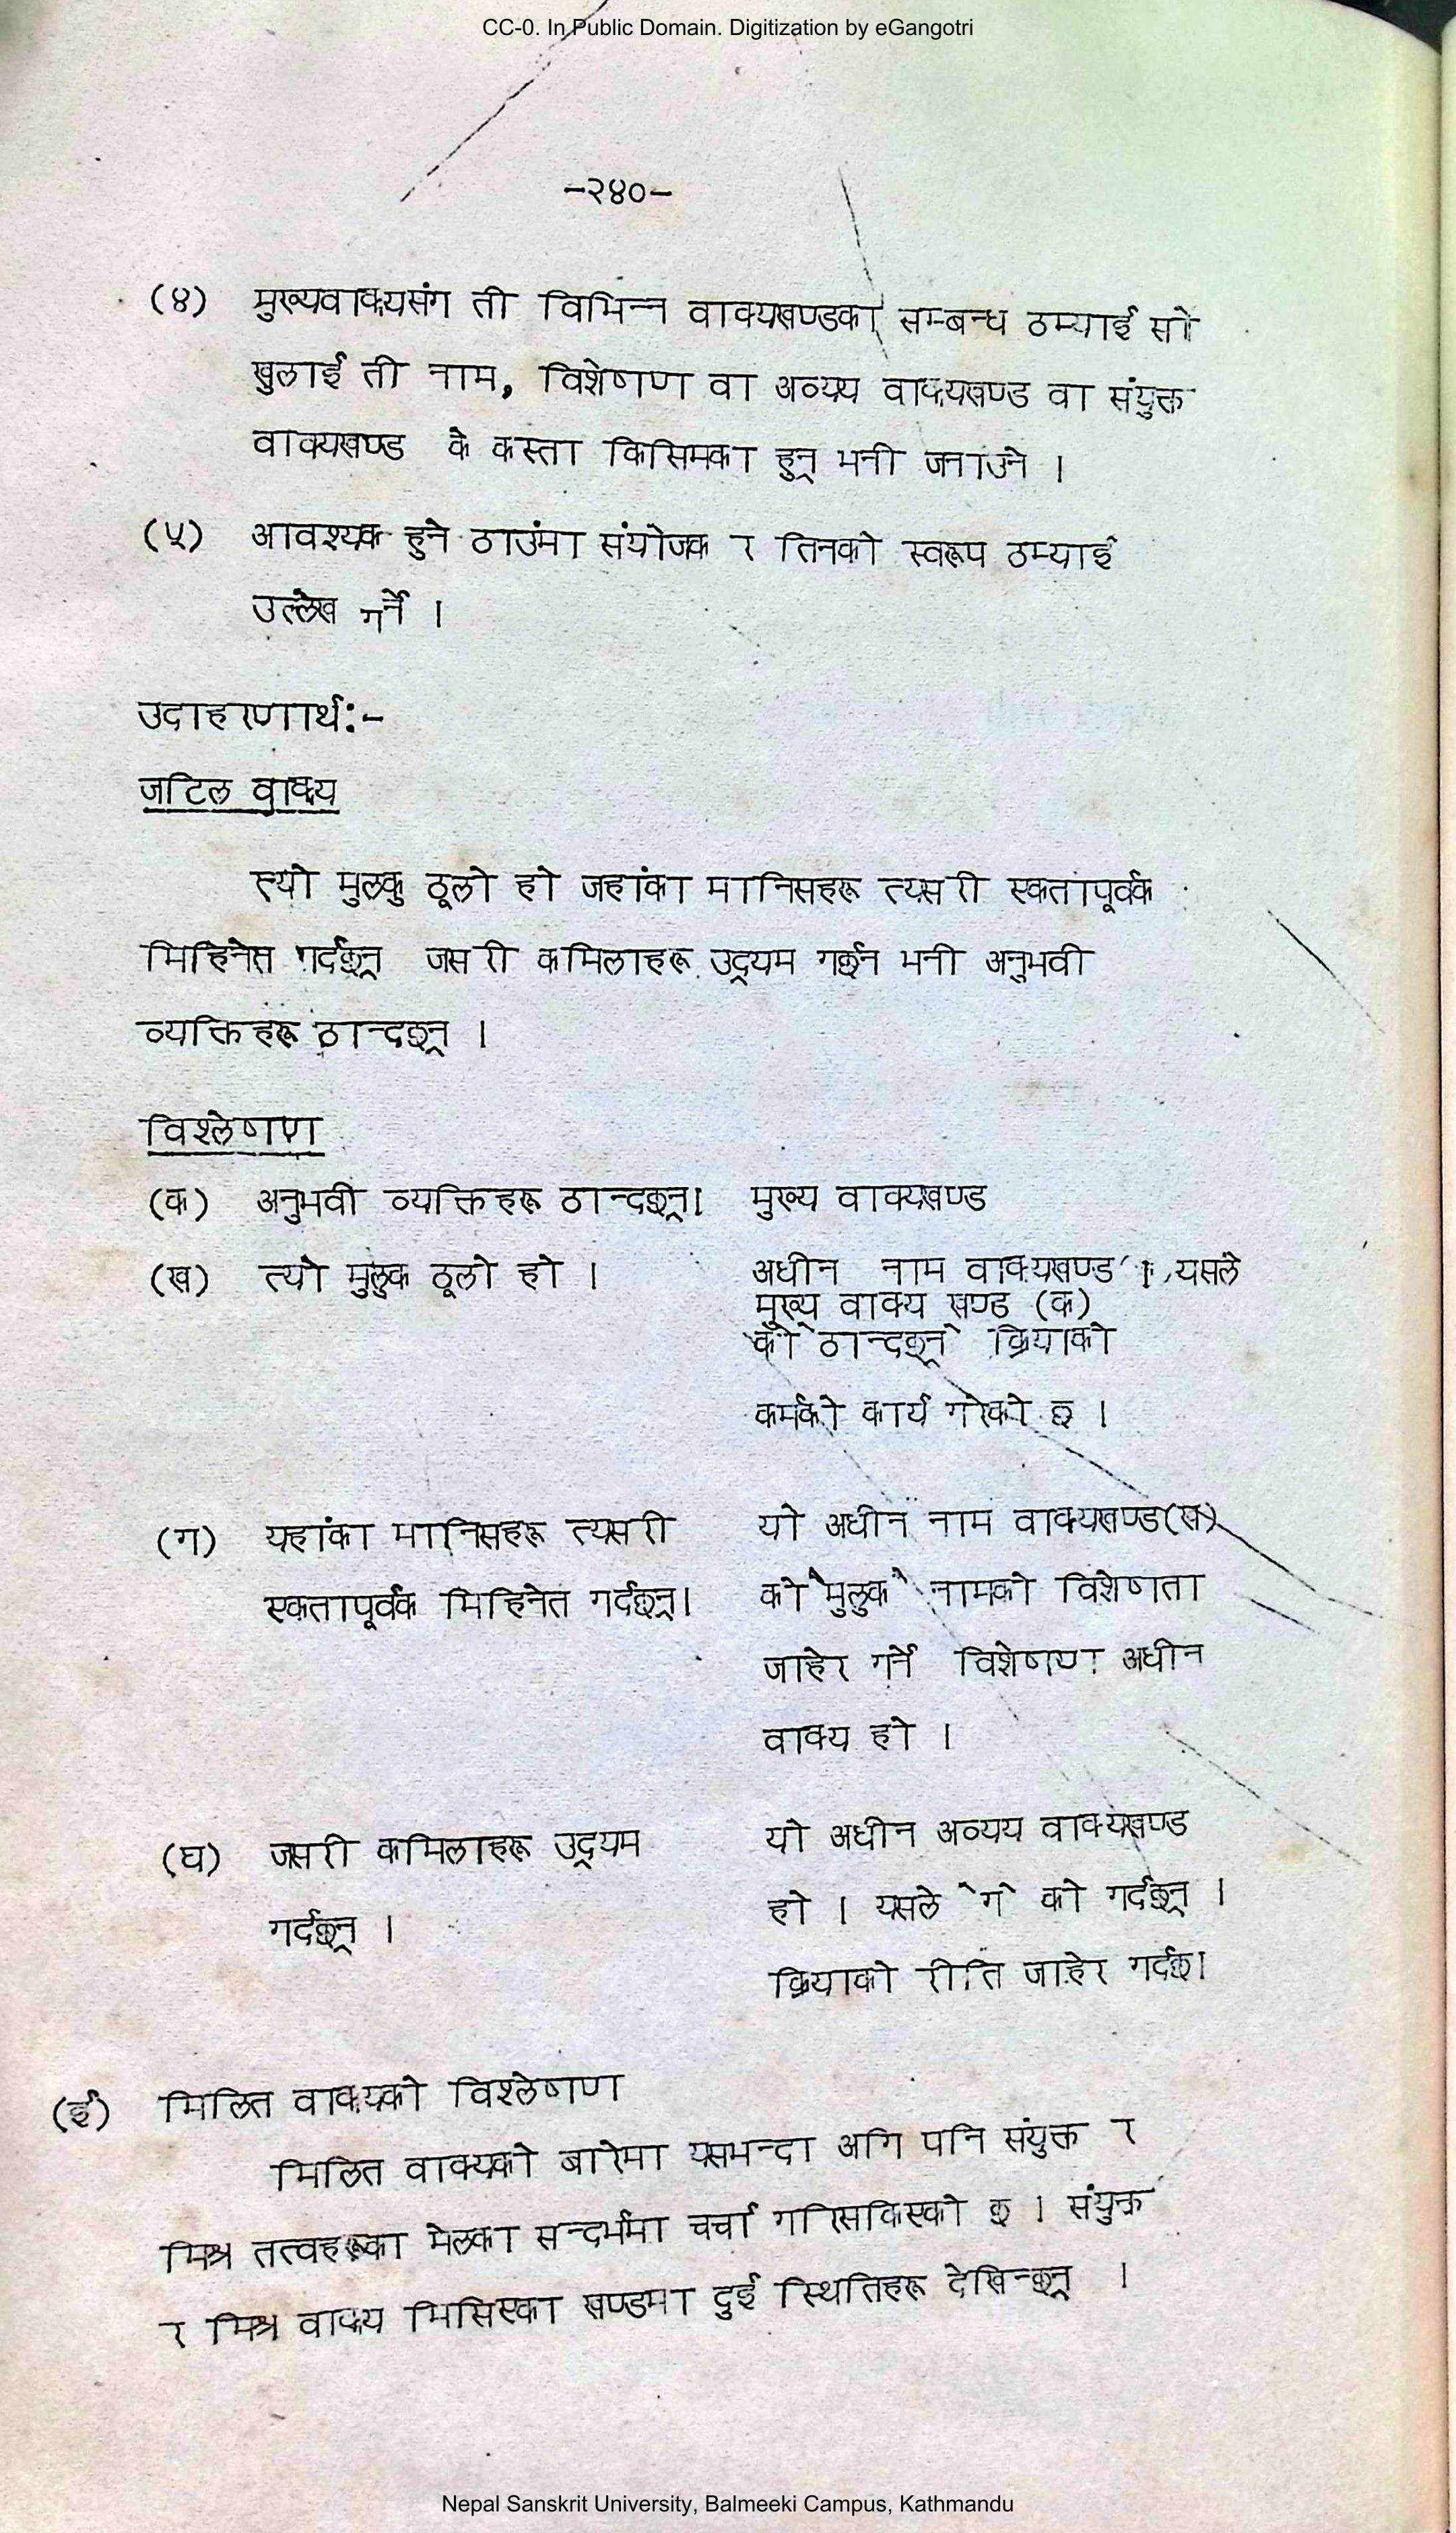 CC-0. In Public Domain. Digitization by eGangotri
-२४०-
(४) मुख्यवाक्यसंग ती विभिन्न वाक्यखण्डका सम्बन्ध ठम्याई सो
खुलाई ती नाम, विशेषण वा अव्यय वाक्यखण्ड वा संयुक्त
वाक्यखण्ड के कस्ता किसिमका हुन् भनी जनाउने ।
(५) आवश्यक हुने ठाउंमा संयोजक र तिनको स्वरूप ठम्याई
उल्लेख गर्ने ।
उदाहरणार्थ:-
जटिल वाक्य
त्यो मुलकु ठूलो हो जहांका मानिसहरू त्यसरी एकतापूर्वक
मिहिनेत गर्दछन् जसरी कमिलाहरू उद्यम गर्छन भनी अनुभवी
व्यक्तिहरू ठान्दछन् ।
विश्लेषण
(क) अनुभवी व्यक्तिहरू ठान्दछन्। मुख्य वाक्यखण्ड
(ख) त्यो मुलुक ठूलो हो । अधीन नाम वाक्यखण्ड । यसले
मुख्य वाक्य खण्ड (क)
को ठान्दछन् क्रियाको
कर्मको कार्य गरेको छ ।
(ग) यहांका मानिसहरू त्यसरी यो अधीन नाम वाक्यखण्ड(ख)
एकतापूर्वक मिहिनेत गर्दछन्। को मुलुक नामको विशेषता
जाहेर गर्ने विशेषण अधीन
वाक्य हो ।
(घ) जसरी कमिलाहरू उद्यम यो अधीन अव्यय वाक्यखण्ड
गर्दछन् । हो । यसले `ग` को गर्दछन् ।
क्रियाको रीति जाहेर गर्दछ।
(ई) मिलित वाक्यको विश्लेषण
मिलित वाक्यको बारेमा यसभन्दा अगि पनि संयुक्त र
मिश्र तत्वहरूका मेलका सन्दर्भमा चर्चा गरिसकिएको छ । संयुक्त
र मिश्र वाक्य मिसिएका खण्डमा दुई स्थितिहरू देखिन्छन् ।
Nepal Sanskrit University, Balmeeki Campus, Kathmandu